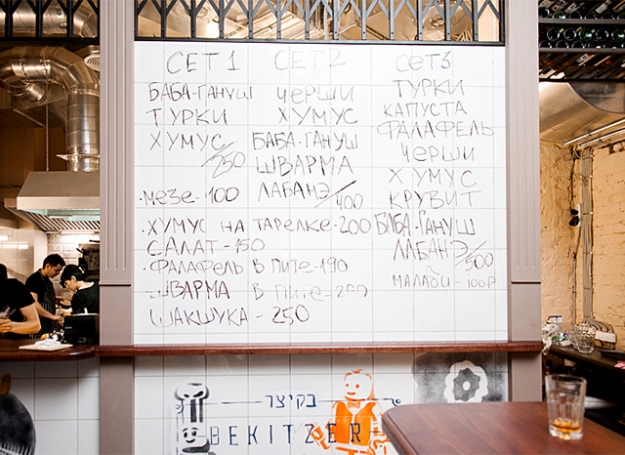 СЕТ 1
БАБА-ГАНУШ
ТУРКИ
ХУМУС
/250
СЕТ 2
ЧЕРШИ
ХУМУС
БАБА-ГАНУШ
ШВАРМА
ЛАБАНЭ/400
СЕТ 3
ТУРКИ
КАПУСТА
ФАЛАФЕЛЬ
ЧЕРШИ
ХУМУС
КРУВИТ
БАБА-ГАНУШ
ЛАБАНЭ/500
МАЛАБИ-100Р
·МЕЗЕ-100
·ХУМУС НА ТАРЕЛКЕ-200
САЛАТ-150
·ФАЛАФЕЛЬ В ПИТЕ-190
·ШВАРМА В ПИТЕ-
ШАКШУКА-250
בקיצר
BEKITZER